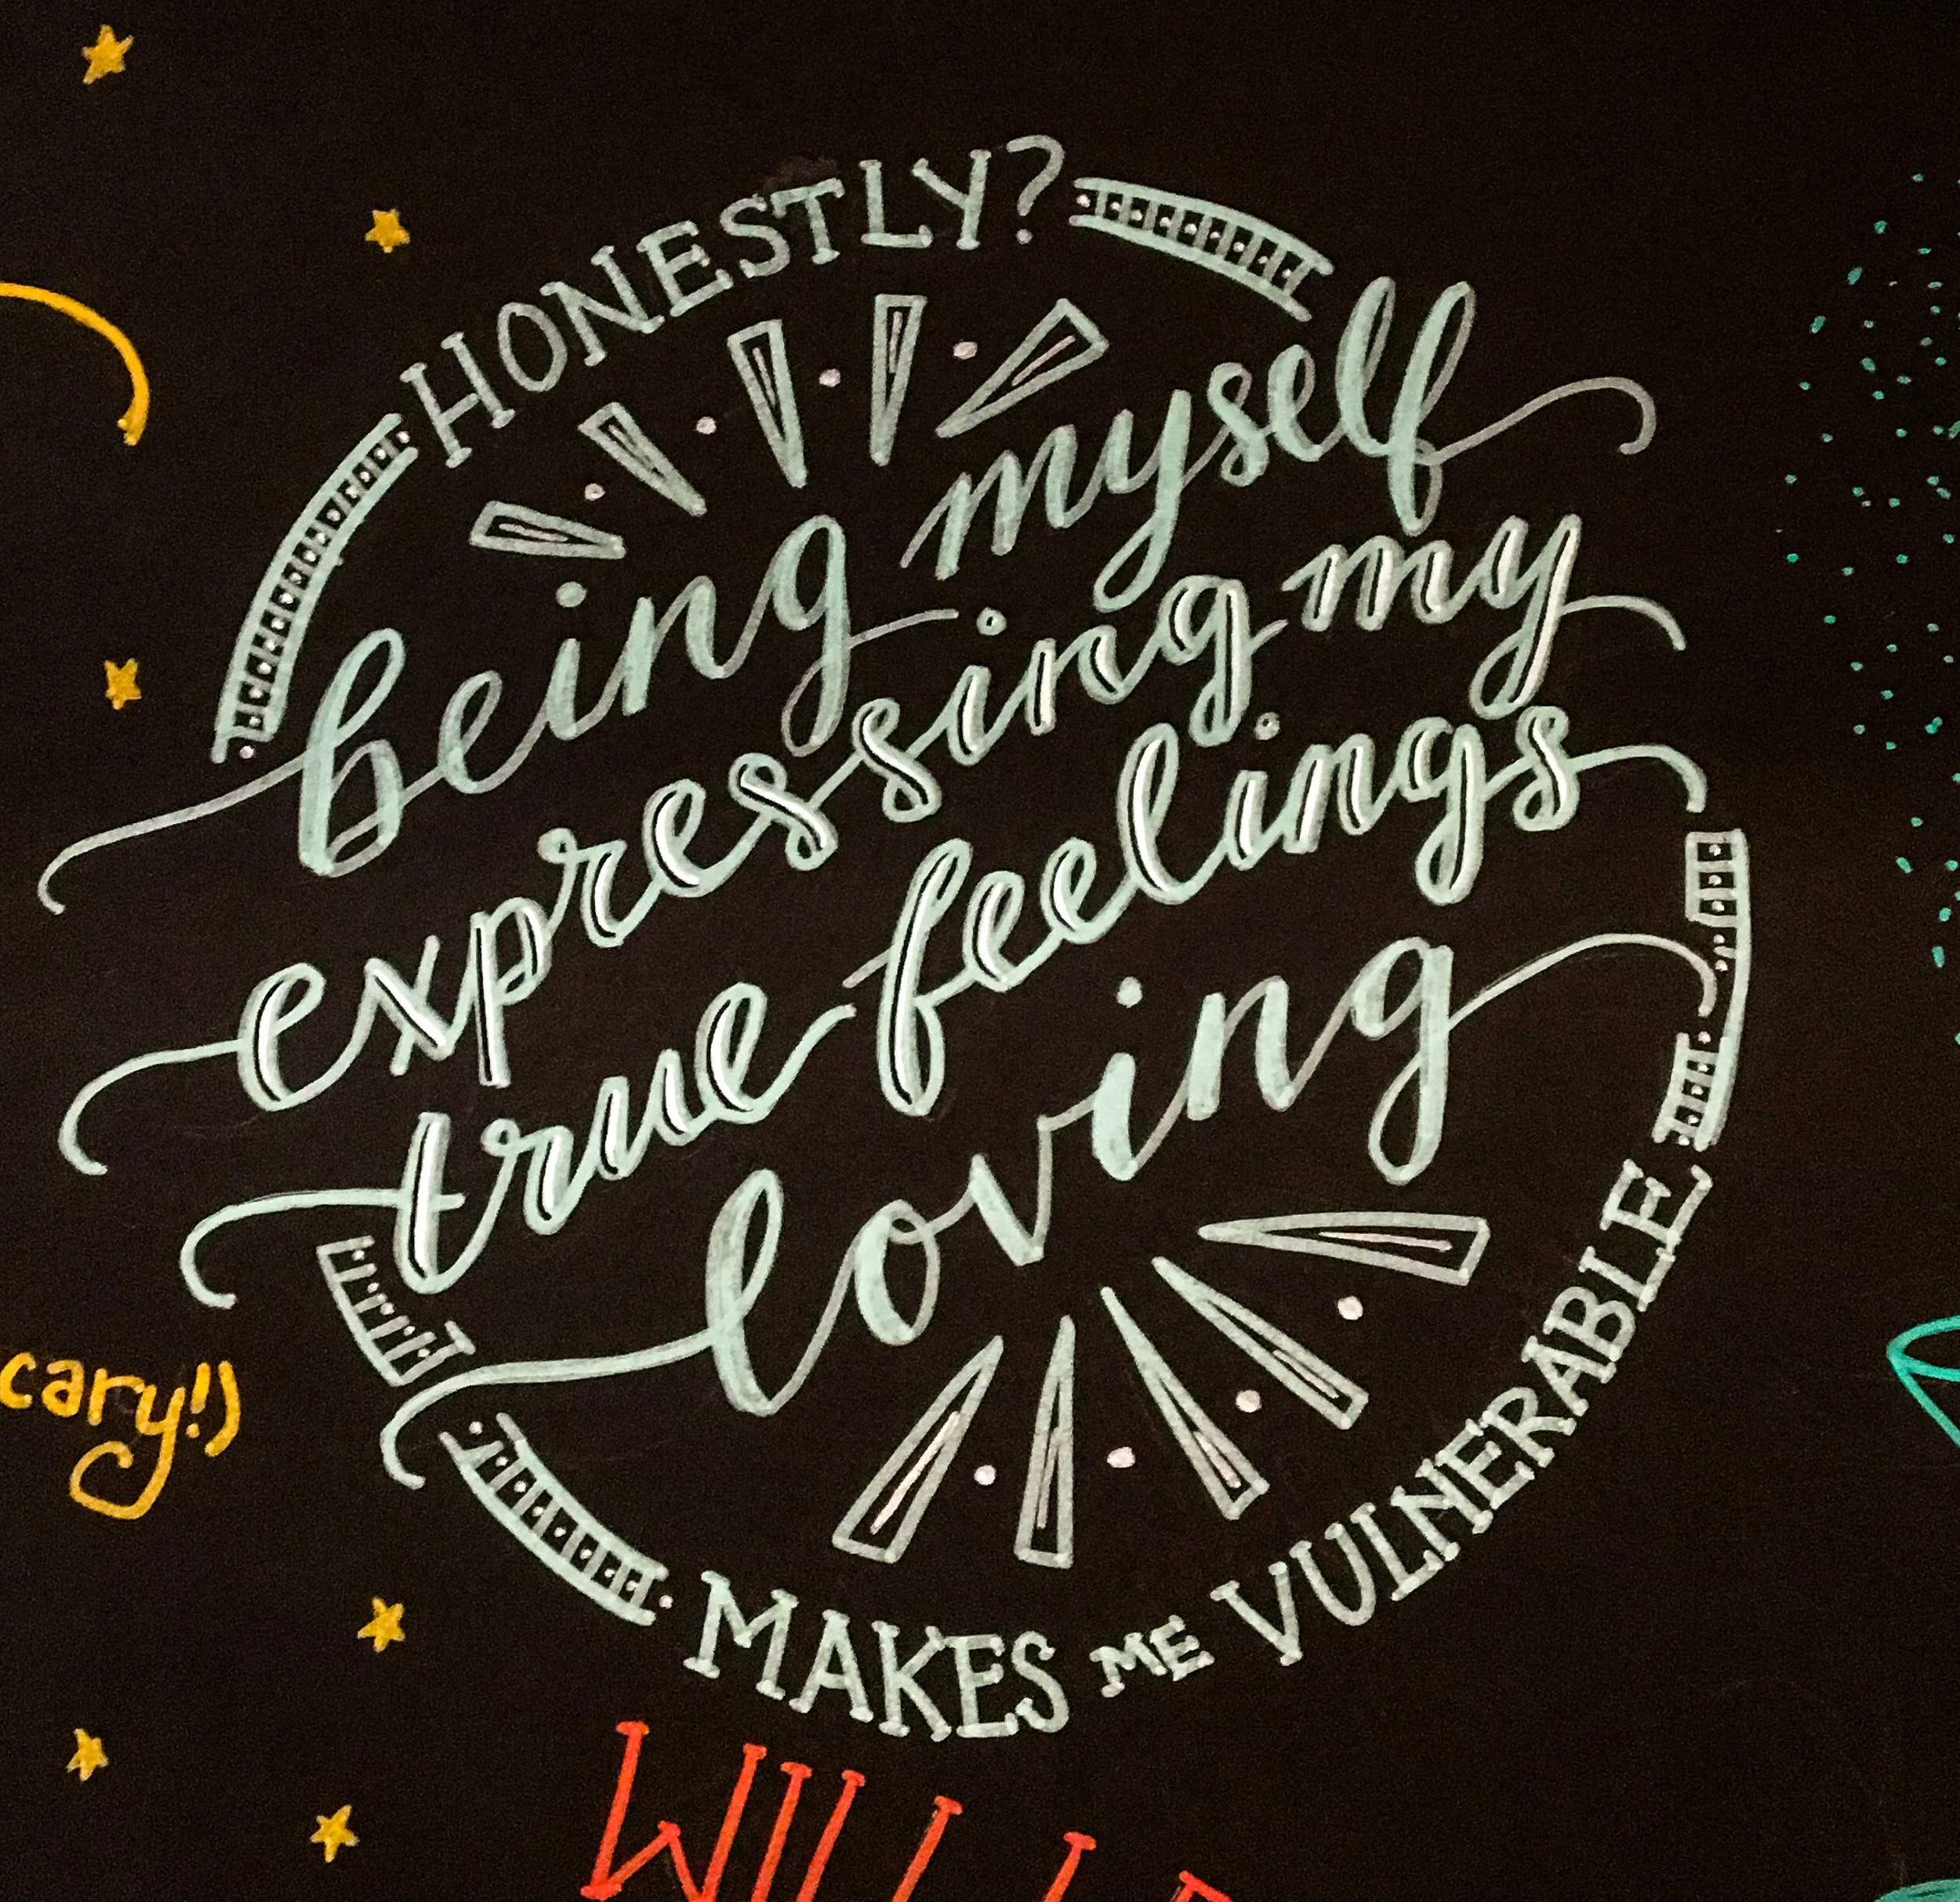 HONESTLY?
being myself
expressing my
true feelings
loving
MAKES ME VULNERABLE
cary!)